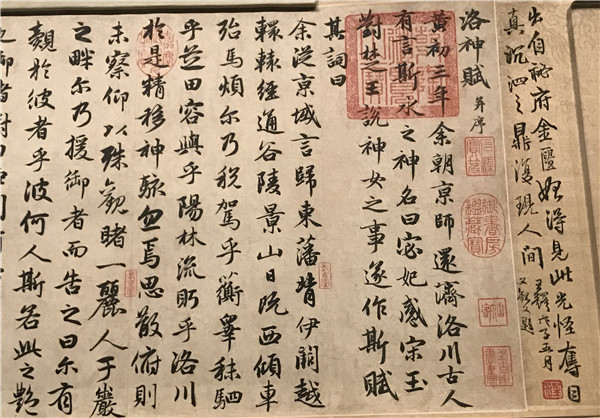 出自祕府金匱始得見此光怪奪目
真沉泗之鼎復現人間
五月
洛神賦 并序
黃初三年余朝京師還濟洛川古人
有言斯水之神名曰宓妃感宋玉
對楚王說神女之事遂作斯賦
其詞曰
余從京城言歸東藩背伊闕越
轘轅經通谷陵景山日既西傾車
殆馬煩尔乃稅駕乎蘅皋秣駟
乎芝田容與乎陽林流眄乎洛川
於是精移神駭忽焉思散俯則
未察仰以殊觀睹一麗人于巖
之畔尔乃援御者而告之曰尔有
覿於彼者乎彼何人斯若此之豔
也御者對曰